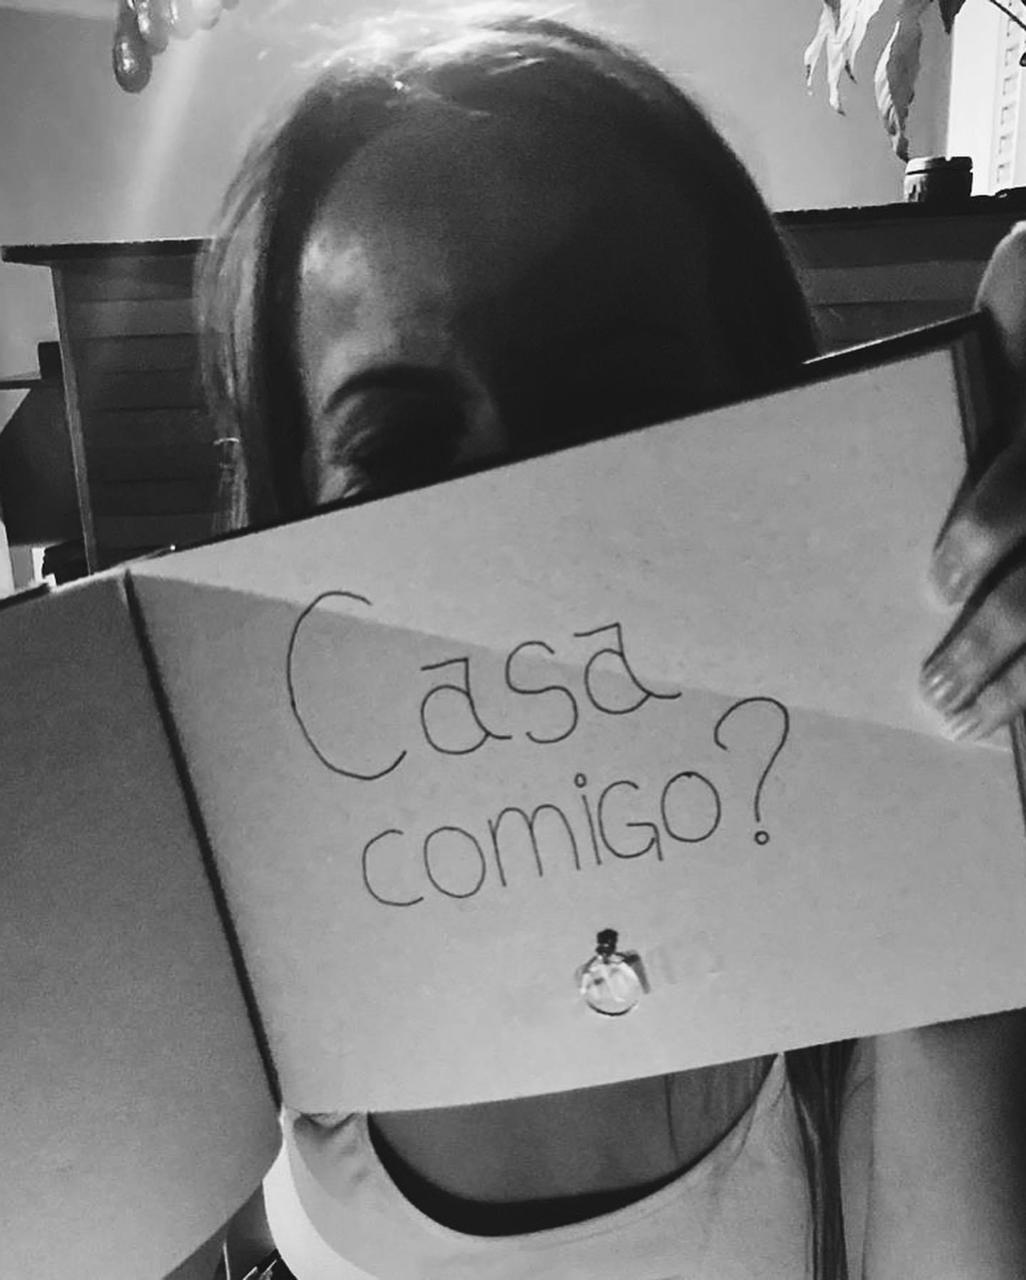 Casa
comigo?